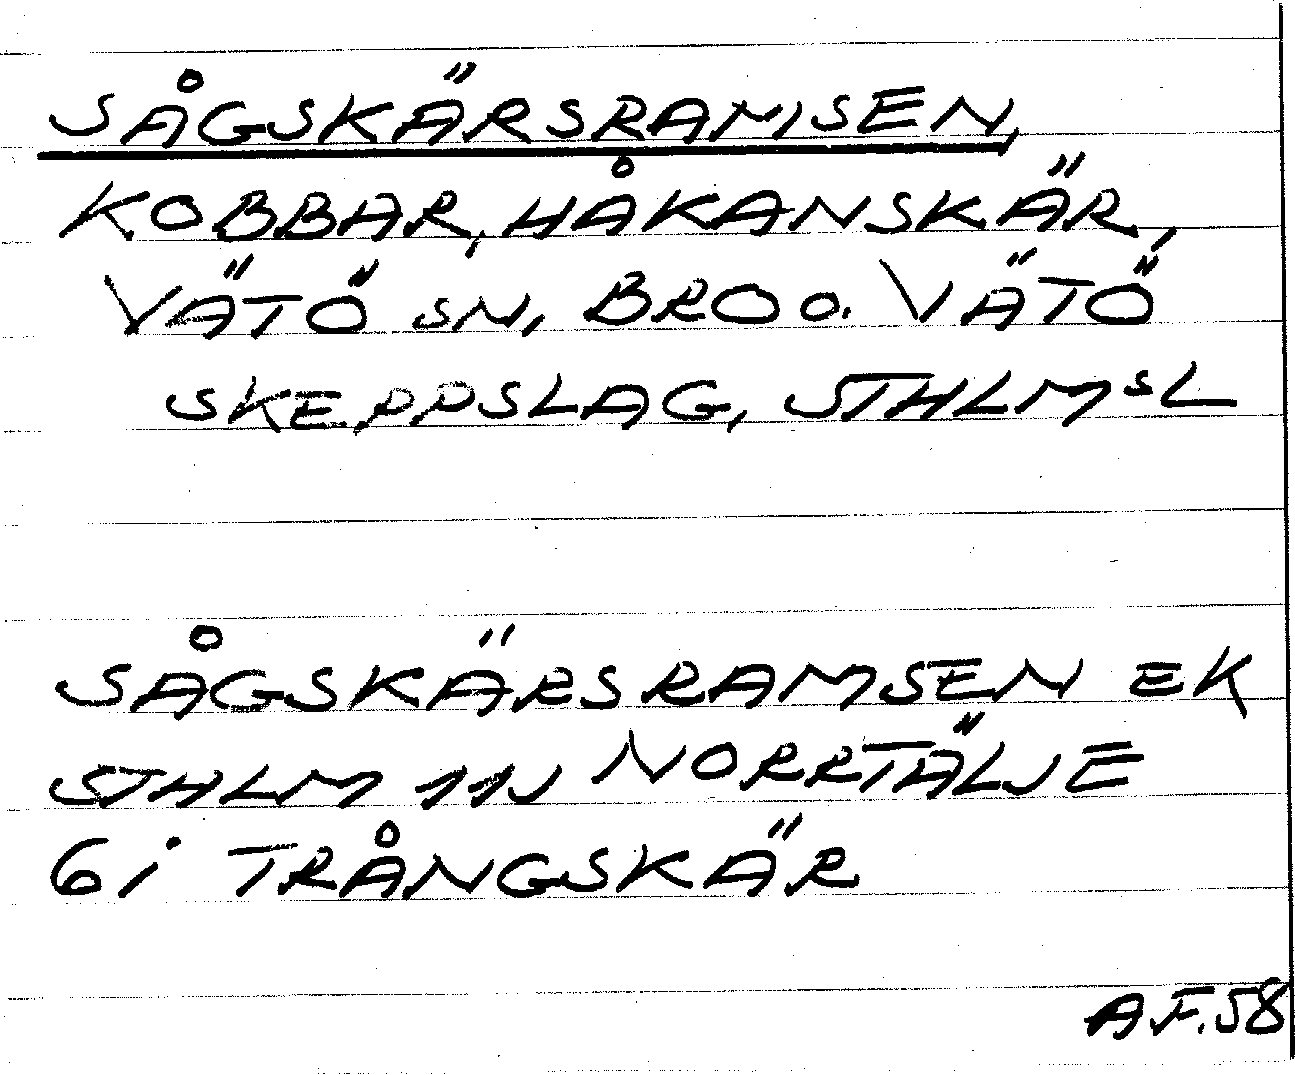 SÅGSKÄRSRAMSEN,
KOBBAR, HÅKANSKÄR,
VÄTÖ SN, BRO O. VÄTÖ
SKEPPSLAG, STHLMSL
SÅGSKÄRSRAMSEN EK
STHLM 11J NORRTÄLJE
6i TRÅNGSKÄR
A F. 58